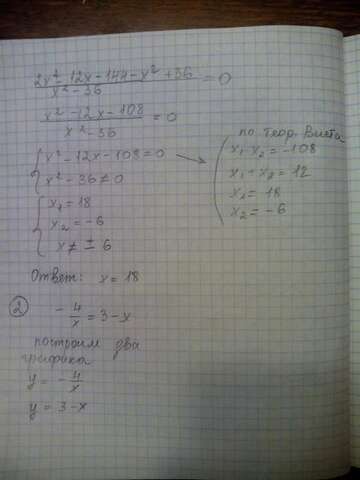 2x² - 12x - 144 - x² + 36 / x² - 36 = 0
x² - 12x - 108 / x² - 36 = 0
{ x² - 12x - 108 = 0
x² - 36 ≠ 0
{ x₁ = 18
x₂ = -6
x ≠ ± 6
по теор. Виета
x₁ · x₂ = -108
x₁ + x₂ = 12
x₁ = 18
x₂ = -6
Ответ: x = 18
② - 4/x = 3 - x
построим два
графика
y = - 4/x
y = 3 - x